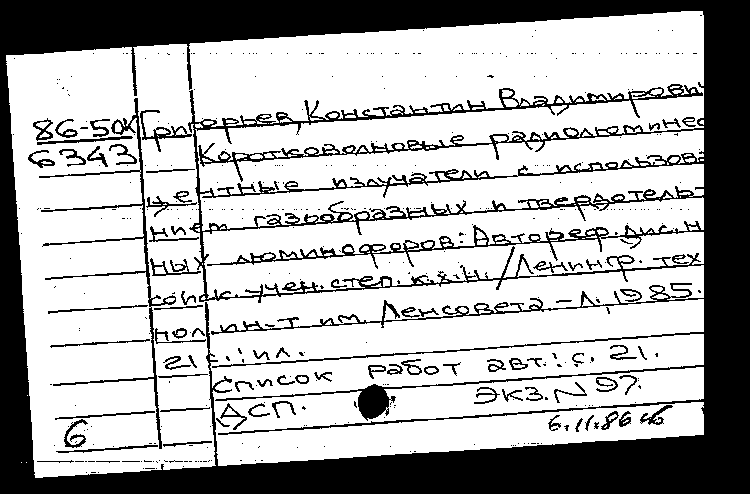 86-50к Григорьев, Константин Владимирови
6343 Коротковолновые радиолюминес
центные излучатели с использова
нием газообразных и твердотель-
ных люминофоров: Автореф. дис. н
соиск. учен. степ. к.х.н. / Ленингр. тех
нол. ин-т им. Ленсовета. – Л., 1985. –
21 с.: ил.
Список работ авт.: с. 21.
ДСП. Экз. N 97.
6 6.11.86